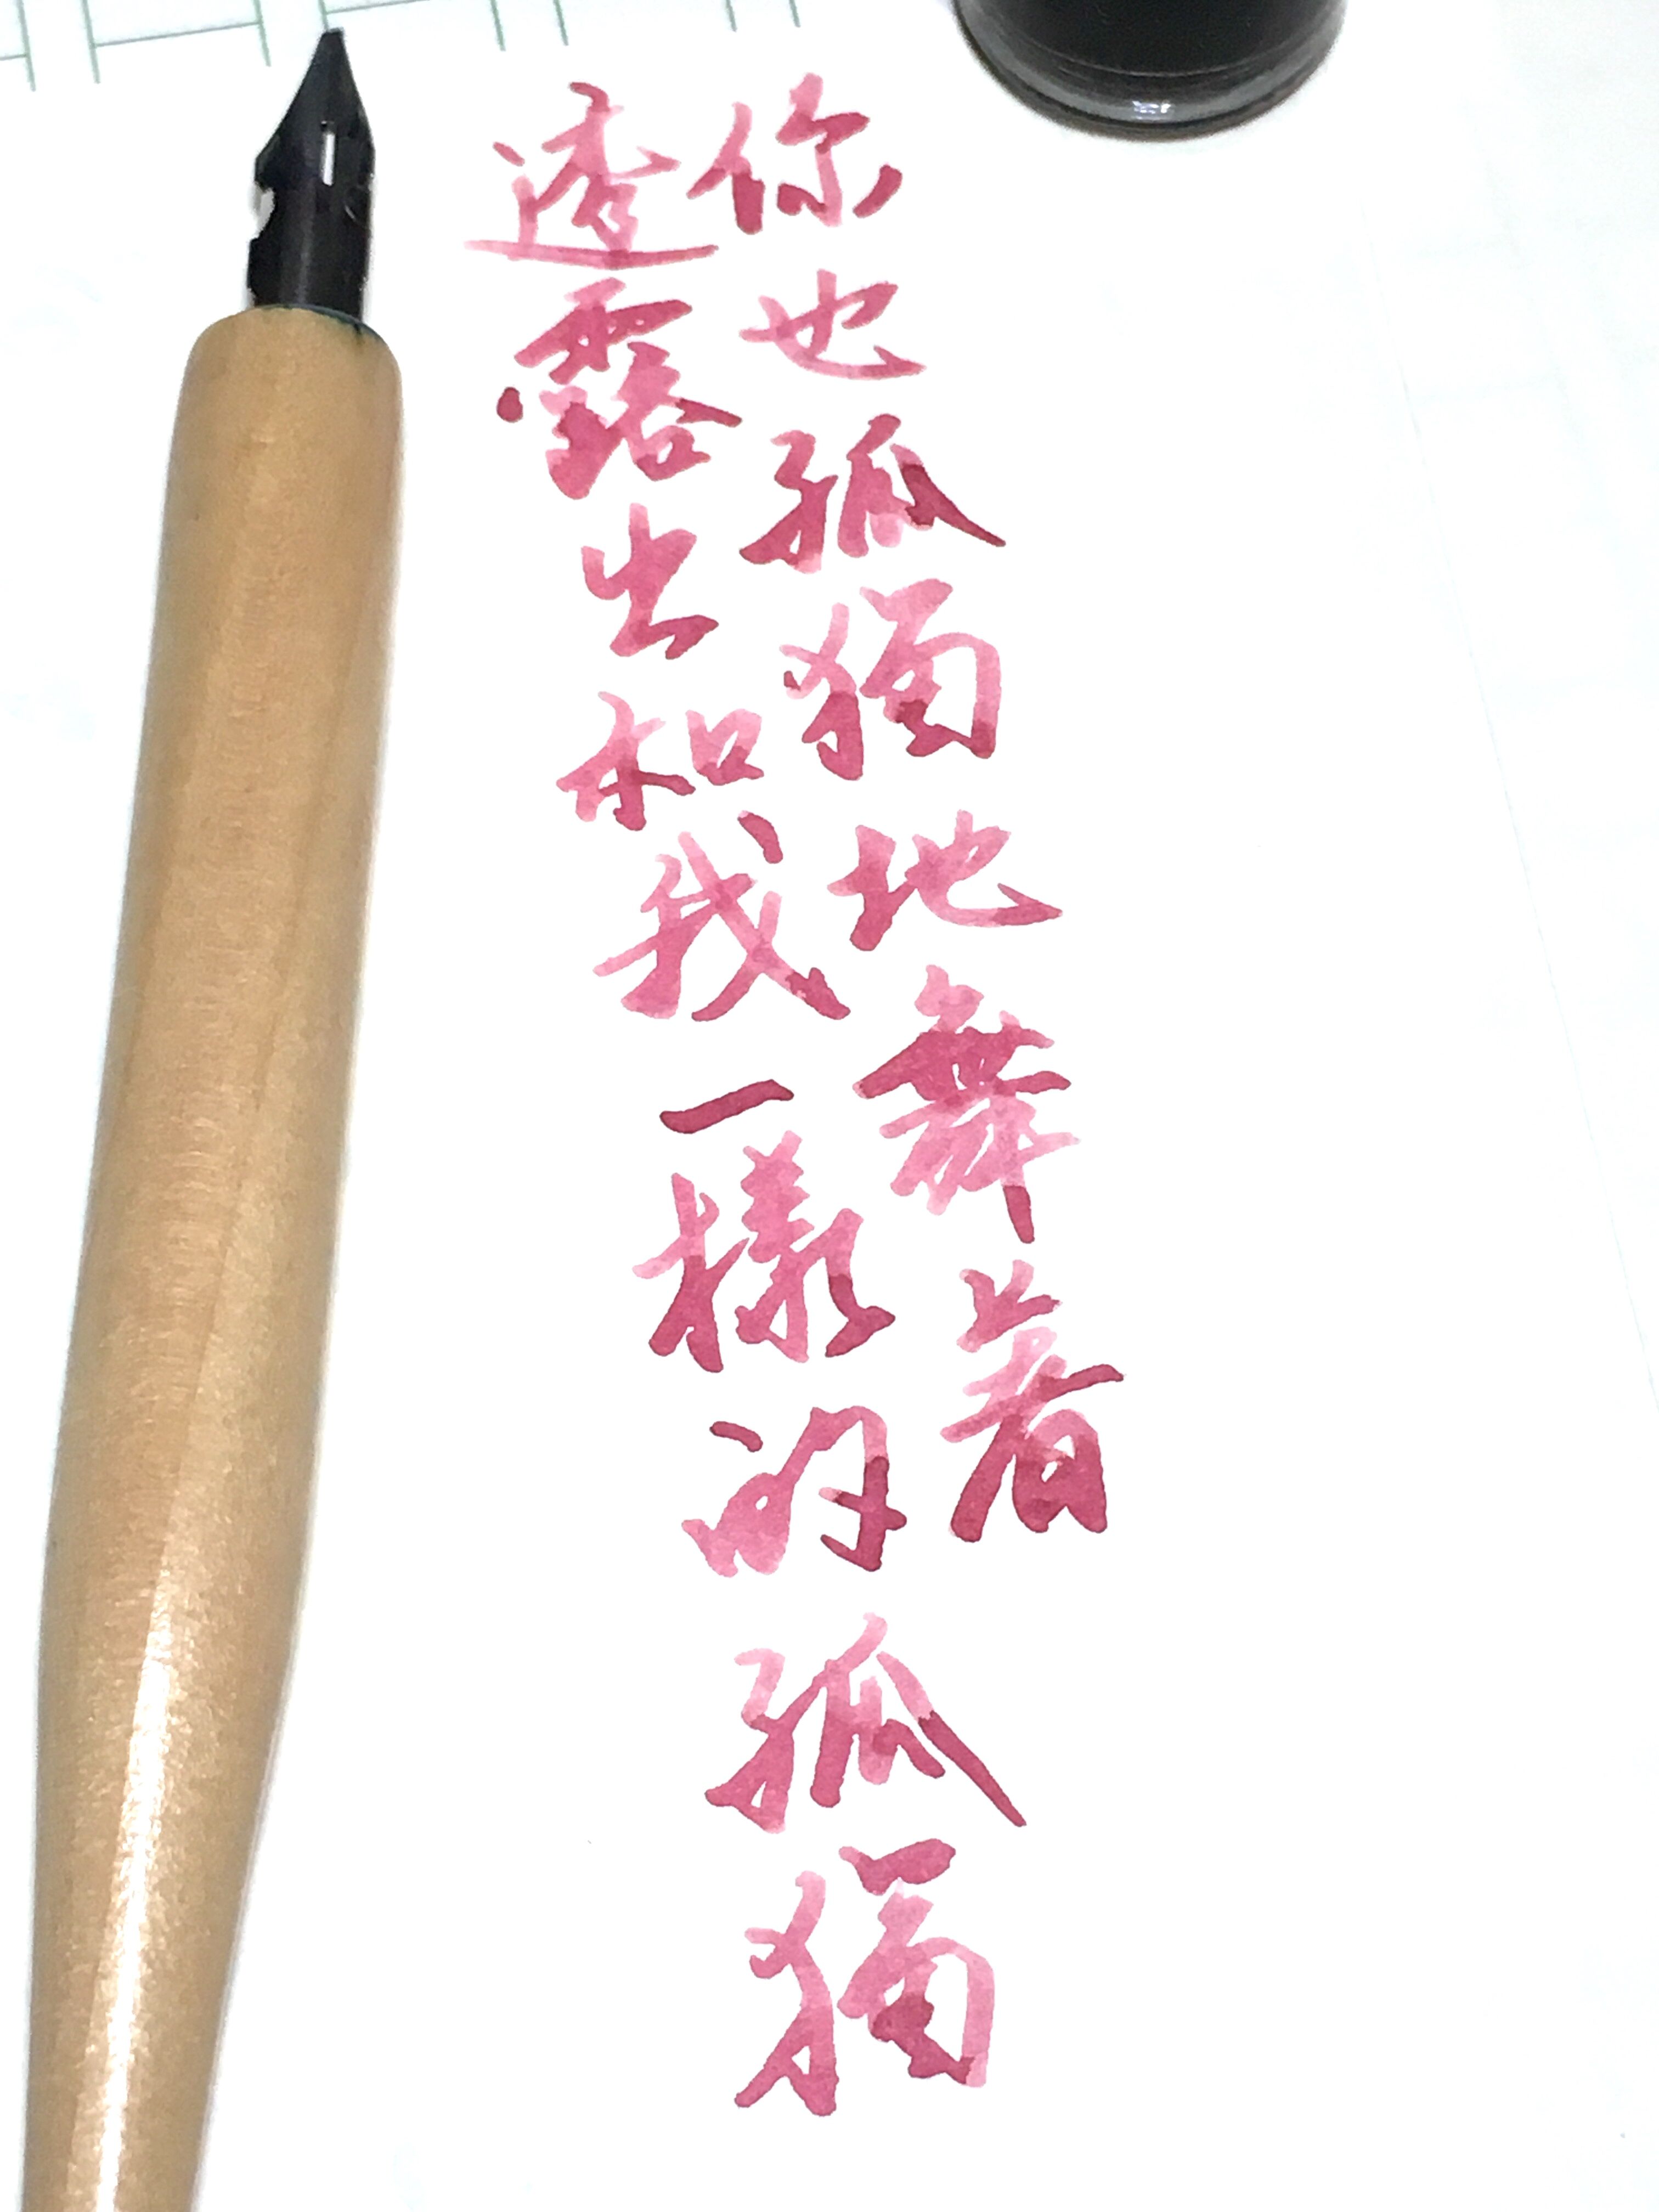 你也孤獨地舞著
透露出和我一樣的孤獨